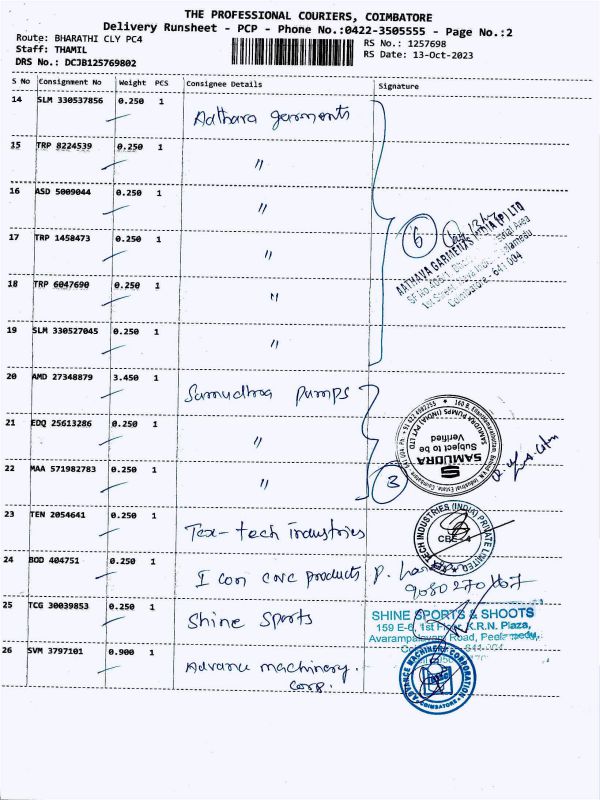 THE PROFESSIONAL COURIERS, COIMBATORE
Delivery Runsheet - PCP - Phone No.:0422-3505555 - Page No.:2
Route: BHARATHI CLY PC4
RS No.: 1257698
Staff: THAMIL
RS Date: 13-Oct-2023
DRS No.: DCJB125769802
S No Consignment No Weight PCS Consignee Details Signature
14 SLM 330537856 0.250 1 Aathava garments
15 TRP 8224539 0.250 1 "
16 ASD 5009044 0.250 1 "
6
AATHAVA GARMENTS INDIA (P) LTD
Coimbatore - 641 004
17 TRP 1458473 0.250 1 "
18 TRP 6047690 0.250 1 "
19 SLM 330527045 0.250 1 "
20 AMD 27348879 3.450 1 Samudhra pumps
21 EDQ 25613286 0.250 1 "
SAMUDRA PUMPS (INDIA) PVT LTD
SAMUDRA
Subject to be
Verified
22 MAA 571982783 0.250 1 "
3
23 TEN 2054641 0.250 1 Tex-tech industries
TEX TECH INDUSTRIES (INDIA) PRIVATE LIMITED
CBE-4
24 BOD 404751 0.250 1 I con cnc products
25 TCG 30039853 0.250 1 Shine Sports
SHINE SPORTS & SHOOTS
159 E-6, 1st Floor, K.R.N. Plaza,
Avarampalayam Road, Peelamedu,
26 SVM 3797101 0.900 1 Advance machinery.
corp.
ADVANCE MACHINERY CORPORATION
COIMBATORE